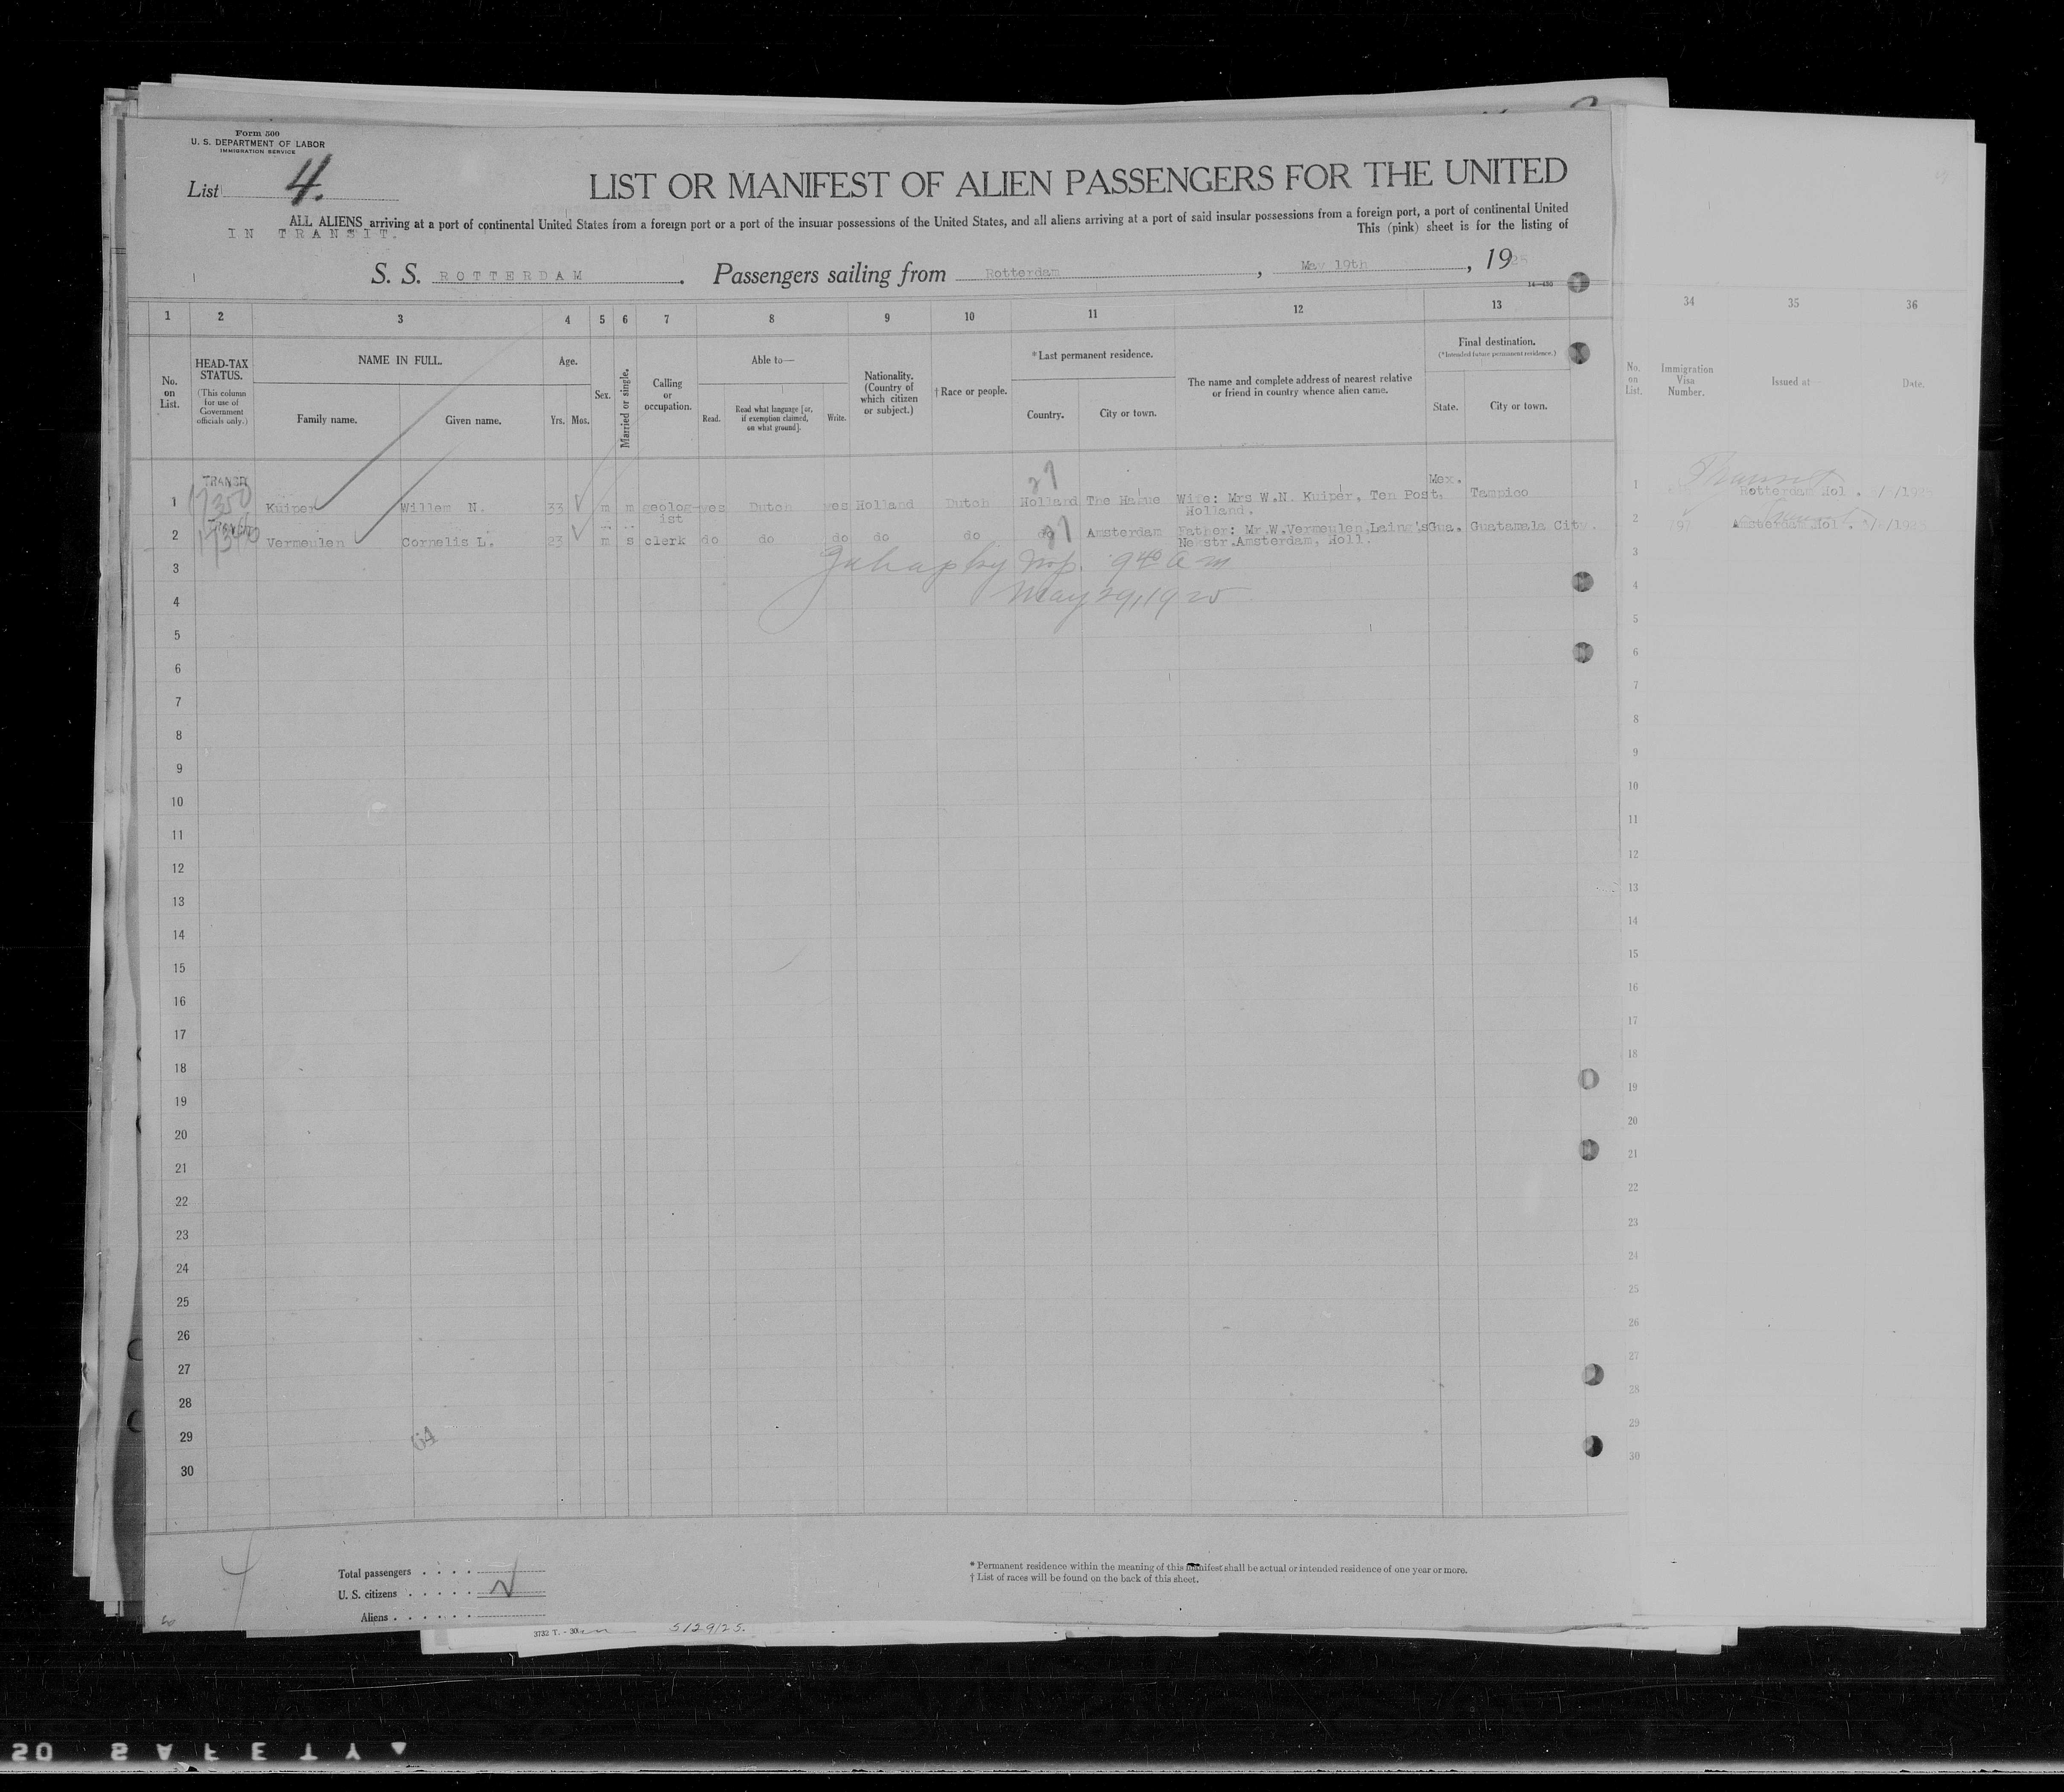 Form 500
U. S. DEPARTMENT OF LABOR
IMMIGRATION SERVICE
List 4.
LIST OR MANIFEST OF ALIEN PASSENGERS FOR THE UNITED
ALL ALIENS arriving at a port of continental United States from a foreign port or a port of the insular possessions of the United States, and all aliens arriving at a port of said insular possessions from a foreign port, a port of continental United
IN TRANSIT.
This (pink) sheet is for the listing of
S. S. ROTTERDAM. Passengers sailing from Rotterdam, May 19th, 1925
14—430
1 2 3 4 5 6 7 8 9 10 11 12 13 34 35 36
No. on List.
HEAD-TAX STATUS.
(This column for use of Government officials only.)
NAME IN FULL.
Family name. Given name.
Age.
Yrs. Mos.
Sex.
Married or single.
Calling or occupation.
Able to—
Read. Read what language [or, if exemption claimed, on what ground]. Write.
Nationality. (Country of which citizen or subject.)
†Race or people.
*Last permanent residence.
Country. City or town.
The name and complete address of nearest relative or friend in country whence alien came.
Final destination.
(*Intended future permanent residence.)
State. City or town.
No. on List.
Immigration Visa Number.
Issued at—
Date.
TRANSIT
1 Kuiper Willem N. 33 m m geologist yes Dutch yes Holland Dutch Holland The Hague Wife: Mrs W.N. Kuiper, Ten Post, Holland. Mex. Tampico
1 Rotterdam Hol.
2 Vermeulen Cornelis L. 23 m s clerk do do do do do do Amsterdam Father: Mr.W.Vermeulen, Gua. Guatamala City.
str.Amsterdam, Holl.
2 797 Amsterdam Hol.
9 40 a m
May 29, 1925
3
4
5
6
7
8
9
10
11
12
13
14
15
16
17
18
19
20
21
22
23
24
25
26
27
28
29
30
64
Total passengers
U. S. citizens
Aliens
* Permanent residence within the meaning of this manifest shall be actual or intended residence of one year or more.
† List of races will be found on the back of this sheet.
5/29/25.
SAFETY